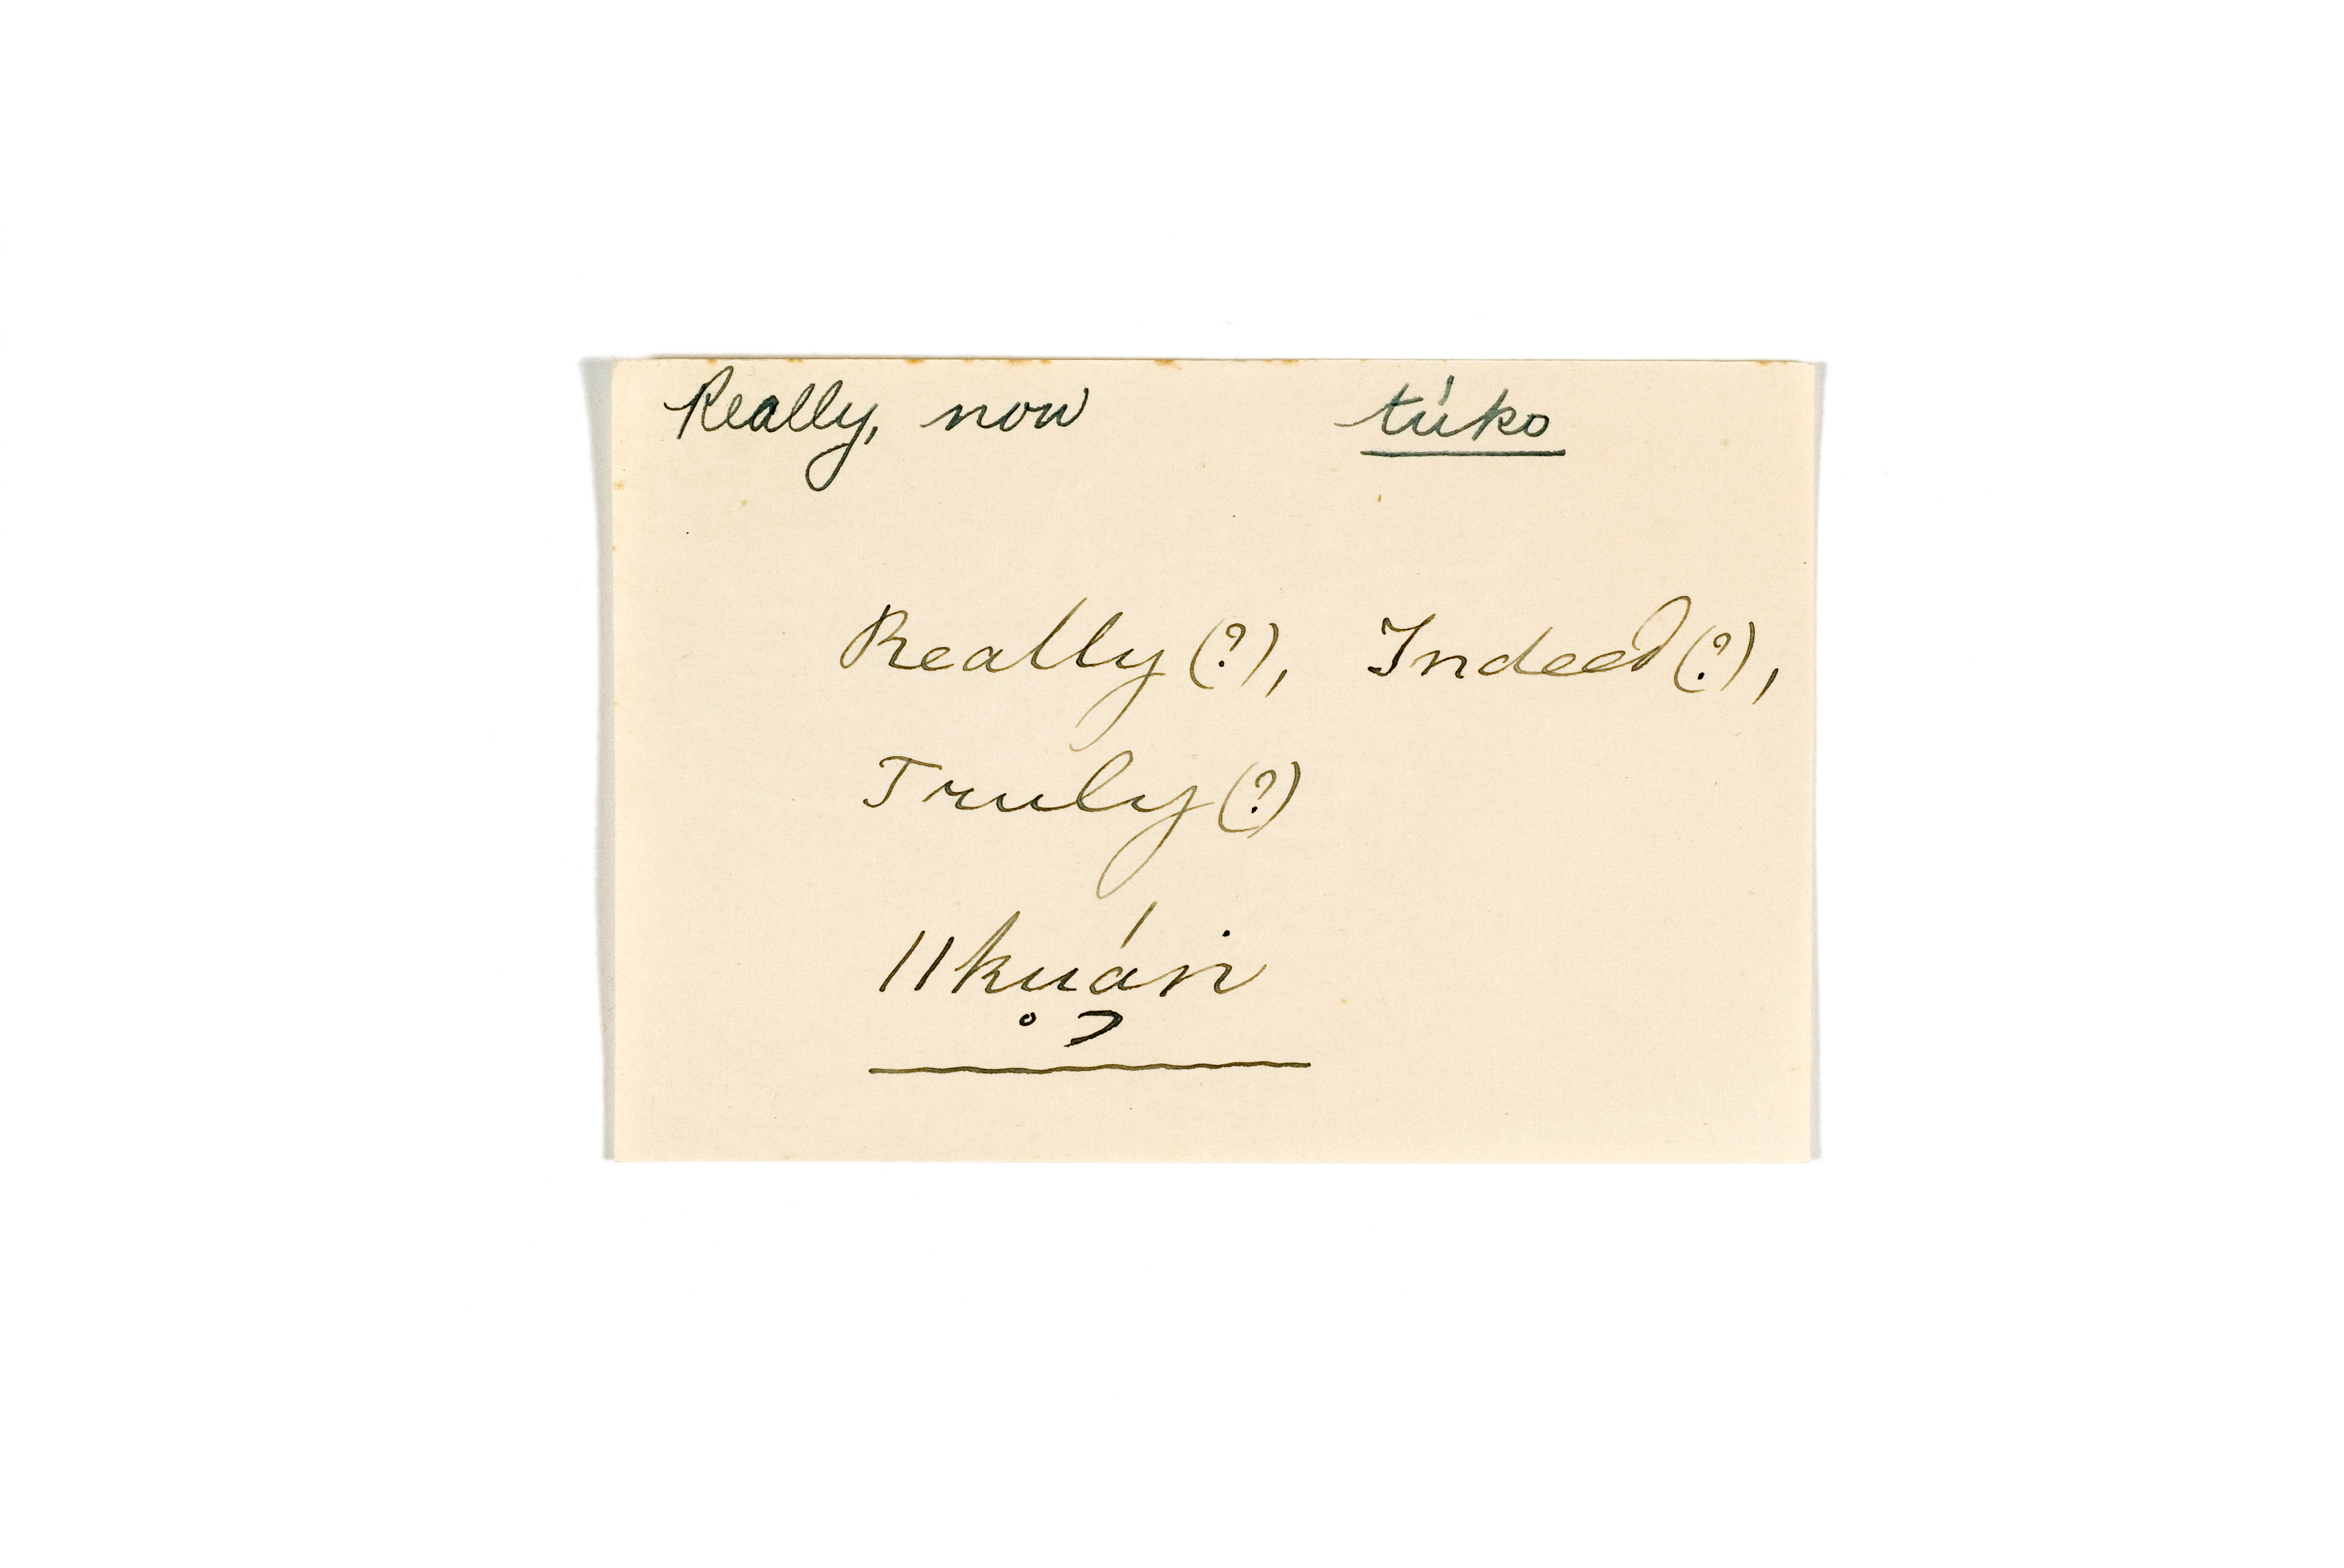 Really, now túko
Really(?), Indeed(?),
Truly(?)
ǁku̥á̓ni